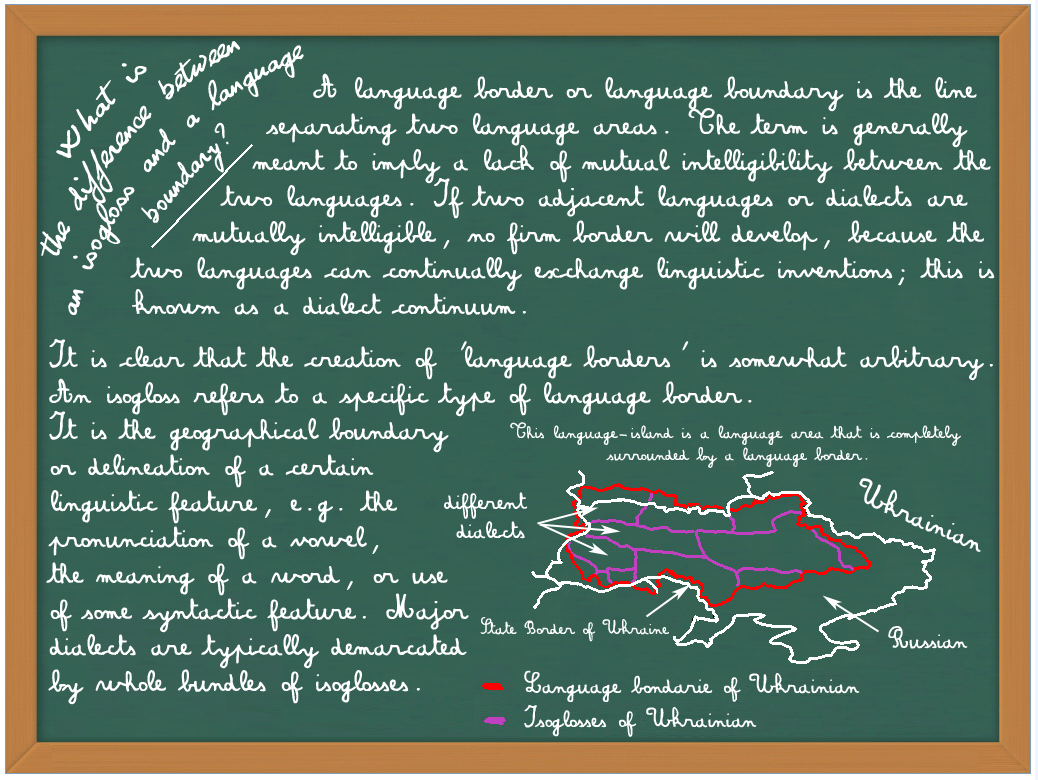 What is
the difference between
an isogloss and a language
boundary?
A language border or language boundary is the line
separating two language areas. The term is generally
meant to imply a lack of mutual intelligibility between the
two languages. If two adjacent languages or dialects are
mutually intelligible, no firm border will develop, because the
two languages can continually exchange linguistic inventions; this is
known as a dialect continuum.
It is clear that the creation of 'language borders' is somewhat arbitrary.
An isogloss refers to a specific type of language border.
It is the geographical boundary
or delineation of a certain
linguistic feature, e.g. the
pronunciation of a vowel,
the meaning of a word, or use
of some syntactic feature. Major
dialects are typically demarcated
by whole bundles of isoglosses.
This language-island is a language area that is completely
surrounded by a language border.
different
dialects
Ukrainian
State Border of Ukraine
Russian
Language bondarie of Ukrainian
Isoglosses of Ukrainian